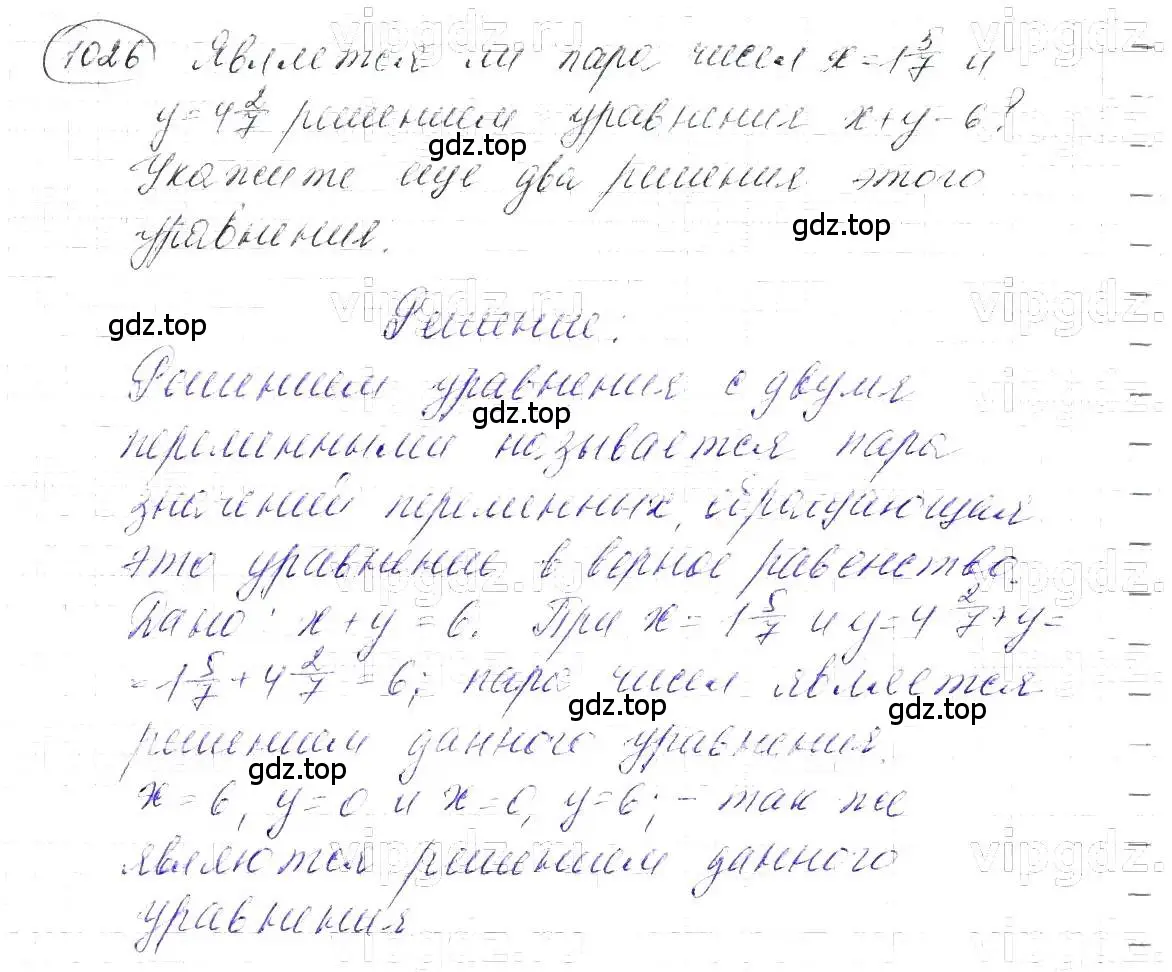 1026 Является ли пара чисел x=1 5/7 и
y=4 2/7 решением уравнения x+y=6?
Укажите еще два решения этого
уравнения.
Решение:
Решением уравнения с двумя
переменными называется пара
значений переменных, обращающая
это уравнение в верное равенство.
Дано: x+y=6. При x=1 5/7 и y=4 2/7 +y=
=1 5/7+4 2/7=6; пара чисел является
решением данного уравнения.
x=6, y=0 и x=0, y=6; - так же
являются решением данного
уравнения
gdz.top
gdz.top
gdz.top
gdz.top
gdz.top
gdz.top
gdz.top
vipgdz.ru
vipgdz.
vipgdz.ru
vipgdz.
vipgdz.ru
vipgdz.
vipgdz.ru
vipgdz.